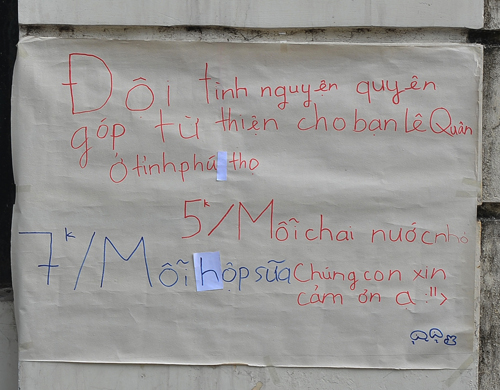 Đôi tình nguyện quyên
góp từ thiện cho bạn Lê Quân
ở tỉnh phú thọ
5k/Mỗi chai nước nhỏ
7k/Mỗi hộp sữa Chúng con xin
cảm ơn ạ !!!>